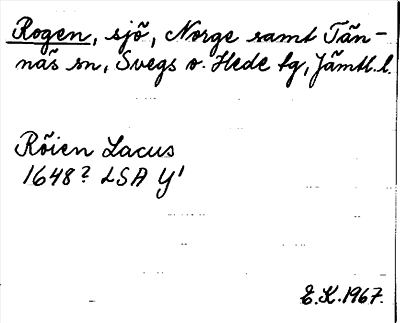 Rogen, sjö, Norge samt Tän-
näs sn, Svegs o. Hede tg, Jämtl. l.
Röien Lacus
1648? LSA Y¹
E.K. 1967.